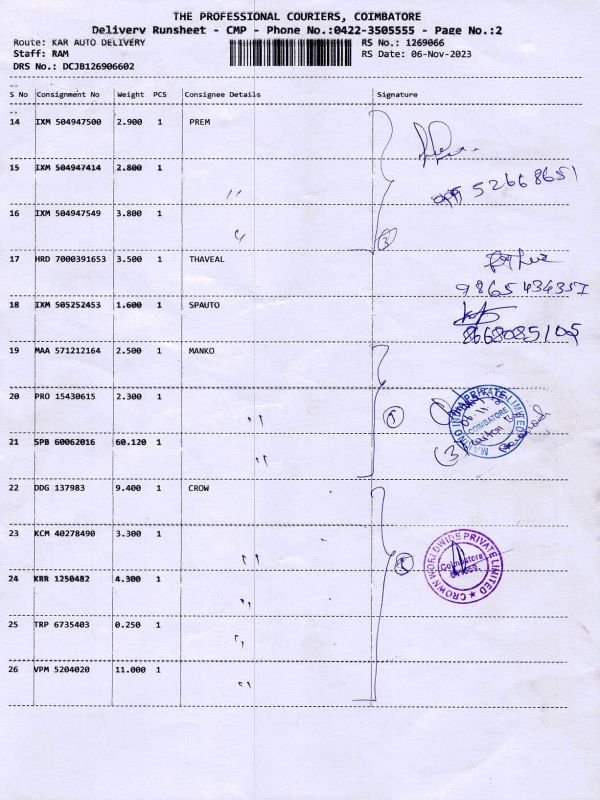 THE PROFESSIONAL COURIERS, COIMBATORE
Delivery Runsheet - CMP - Phone No.:0422-3505555 - Page No.:2
Route: KAR AUTO DELIVERY RS No.: 1269066
Staff: RAM RS Date: 06-Nov-2023
DRS No.: DCJB126906602
S No Consignment No Weight PCS Consignee Details Signature
14 IXM 504947500 2.900 1 PREM
15 IXM 504947414 2.800 1 ''
52668651
16 IXM 504947549 3.800 1 ''
3
17 HRD 7000391653 3.500 1 THAVEAL
9865434357
18 IXM 505252453 1.600 1 SPAUTO
8668085105
19 MAA 571212164 2.500 1 MANKO
20 PRO 15430615 2.300 1 ''
COIMBATORE
21 SPB 60062016 60.120 1 ''
3
22 DDG 137983 9.400 1 CROW
23 KCM 40278490 3.300 1 ''
CROWN WORLDWIDE PRIVATE LIMITED
Coimbatore
24 KRR 1250482 4.300 1 ''
25 TRP 6735403 0.250 1 ''
26 VPM 5204020 11.000 1 ''